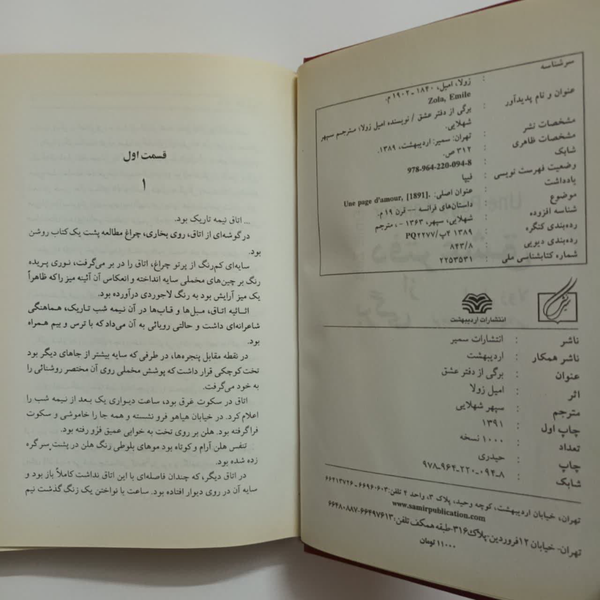 سرشناسه : زولا، امیل، ۱۸۴۰ - ۱۹۰۲ م.
Zola, Emile
عنوان و نام پدیدآور : برگی از دفتر عشق / نویسنده امیل زولا؛ مترجم سپهر شهلایی.
مشخصات نشر : تهران: سمیر: اردیبهشت، ۱۳۸۹.
مشخصات ظاهری : ۳۱۲ ص.
شابک : 978-964-220-094-8
وضعیت فهرست نویسی : فیپا
یادداشت : عنوان اصلی: Une page d'amour, [1891].
موضوع : داستان‌های فرانسه -- قرن ۱۹ م.
شناسه افزوده : شهلایی، سپهر، ۱۳۶۳ - ، مترجم
رده‌بندی کنگره : PQ۲۲۷۷/ ۴ب ۱۳۸۹
رده‌بندی دیویی : ۸۴۳/۸
شماره کتابشناسی ملی : ۲۲۵۳۵۳۱
انتشارات اردیبهشت
ناشر : انتشارات سمیر
ناشر همکار : اردیبهشت
عنوان : برگی از دفتر عشق
اثر : امیل زولا
مترجم : سپهر شهلایی
چاپ اول : ۱۳۹۱
تعداد : ۱۰۰۰ نسخه
چاپ : حیدری
شابک : ۹۷۸-۹۶۴-۲۲۰-۰۹۴-۸
تهران، خیابان اردیبهشت، کوچه وحید، پلاک ۳، واحد ۴ تلفن:
www.samirpublication.com
تهران- خیابان ۱۲ فروردین- پلاک ۳۱۶- طبقه همکف تلفن: ۶۶۴۹۷۶۱۳-۶۶۴۸۰۸۸۷
۱۱۰۰۰ تومان
قسمت اول
۱
... اتاق نیمه تاریک بود.
در گوشه‌ای از اتاق، روی بخاری، چراغ مطالعه پشت یک کتاب روشن
بود.
سایه‌ای کم‌رنگ از پرتو چراغ، اتاق را در بر می‌گرفت، نوری پریده
رنگ بر چین‌های مخملی سایه انداخته و انعکاس آن آئینه میز را که ظاهراً
یک میز آرایش بود به رنگ لاجوردی درآورده بود.
اثاثیه اتاق، مبل‌ها و قاب‌ها در آن نیمه شب تاریک، هماهنگی
شاعرانه‌ای داشت و حالتی رویائی به آن می‌داد که با ترس و بیم همراه
بود.
در نقطه مقابل پنجره‌ها، در طرفی که سایه بیشتر از جاهای دیگر بود
تخت کوچکی قرار داشت که پوشش مخملی روی آن مختصر روشنائی را
به خود می‌گرفت.
اتاق در سکوت غرق بود، ساعت دیواری یک بعد از نیمه شب را
اعلام کرد. در خیابان هیاهو فرو نشسته و همه جا را خاموشی و سکوت
فراگرفته بود. هلن بر روی تخت به خوابی عمیق فرو رفته بود.
تنفس هلن آرام و کوتاه بود موهای بلوطی رنگ هلن در پشت سر گره
زده شده بود.
اتاق دیگری که چندان فاصله‌ای با این اتاق نداشت کاملاً باز بود و
سایه آن در روی دیوار افتاده بود. ساعت با نواختن یک زنگ گذشت نیم